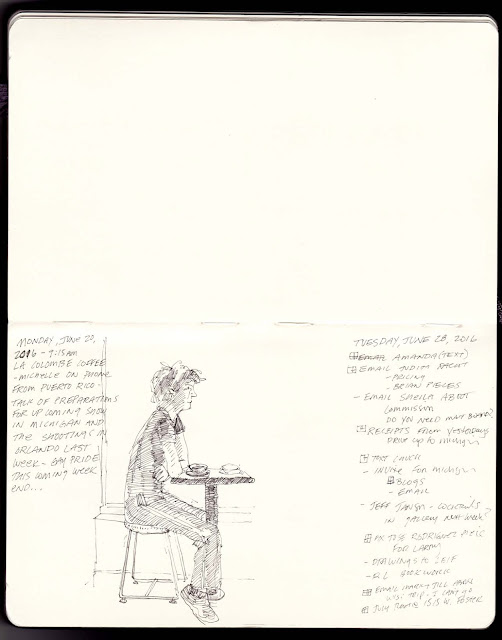 MONDAY, JUNE 20,
2016 - 9:15AM
LA COLOMBE COFFEE
- MICHELLE ON PHONE
FROM PUERTO RICO -
TALK OF PREPARATIONS
FOR UP COMING SHOW
IN MICHIGAN AND
THE SHOOTINGS IN
ORLANDO LAST
WEEK - GAY PRIDE
THIS COMING WEEK
END...
TUESDAY, JUNE 28, 2016
EMAIL AMANDA (TEXT)
EMAIL JUDITH
- PRICING
- BRIAN PIECES
- EMAIL SHEILA ABOUT
COMMISSION
DO YOU NEED MAT BOARD?
RECEIPTS FROM YESTERDAYS
DRIVE UP TO
TEXT CHUCK
- INVITE FOR MICHIGAN
BLOGS
- EMAIL
- JEFF - COCKTAILS
IN GALLERY NEXT WEEK?
FIX JOSE RODRIGUEZ PIECE
FOR
- DRAWINGS TO LEIF
-
EMAIL ABOUT
TRIP - I CAN'T GO
JULY 1515 W. FOSTER